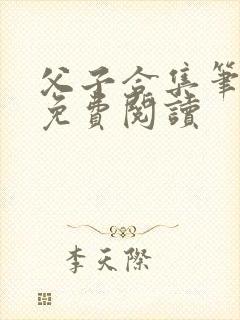 父子合集筆
免費閱讀
李天際